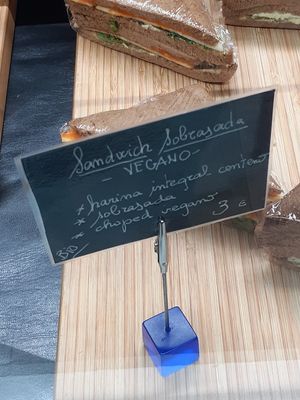 Sandwich Sobrasada
-VEGANO-
* harina integral centeno
* sobrasada
* choped vegano
3 €
BIO/